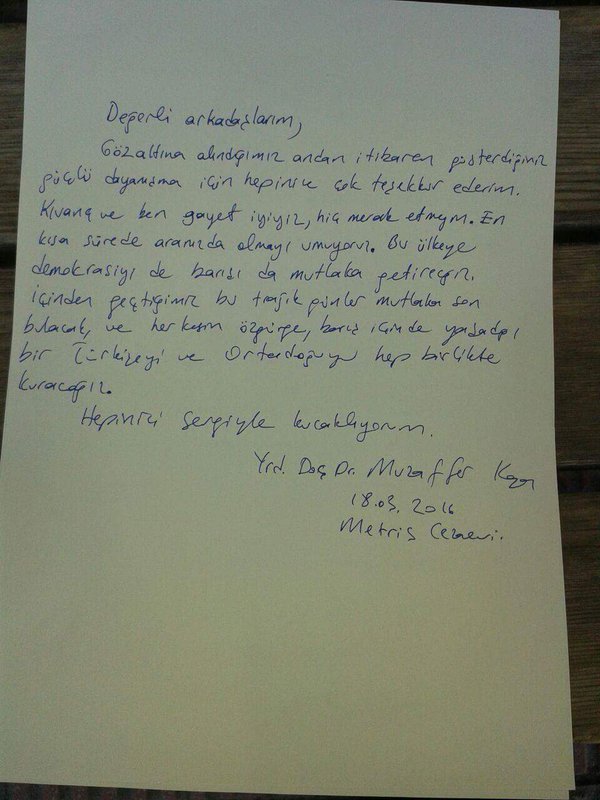 Değerli arkadaşlarım,
Gözaltına alındığımız andan itibaren gösterdiğiniz
güçlü dayanışma için hepinize çok teşekkür ederim.
Kıvanç ve ben gayet iyiyiz, hiç merak etmeyin. En
kısa sürede aranızda olmayı umuyoruz. Bu ülkeye
demokrasiyi de barışı da mutlaka getireceğiz.
İçinden geçtiğimiz bu trajik günler mutlaka son
bulacak, ve herkesin özgürce, barış içinde yaşadığı
bir Türkiyeyi ve Ortadoğuyu hep birlikte
kuracağız.
Hepinizi sevgiyle kucaklıyorum.
Yrd. Doç Dr. Muzaffer Kaya
18.03.2016
Metris Cezaevi.